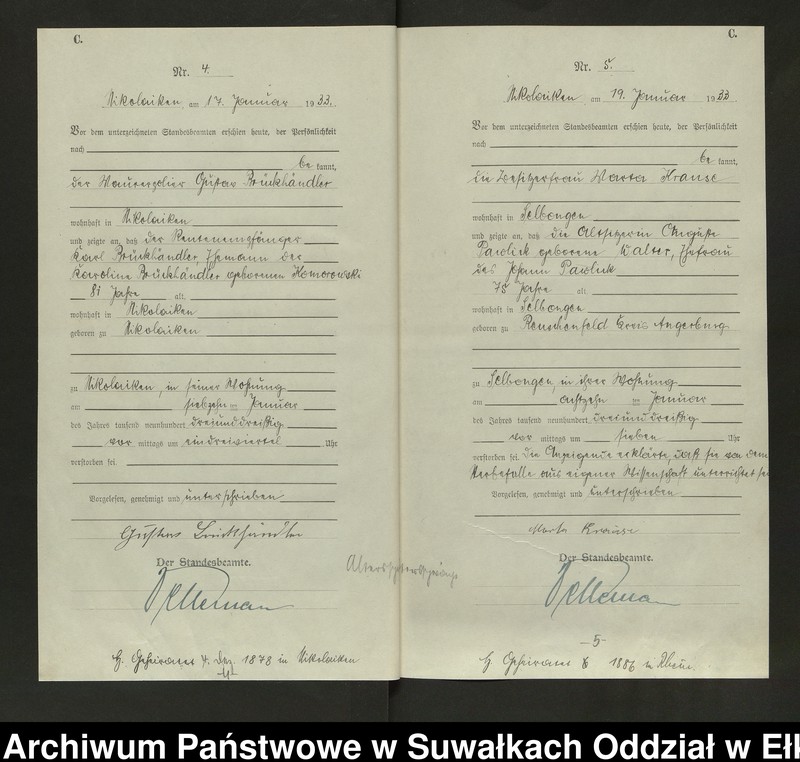 C.
Nr. 4.
Nikolaiken, am 17. Januar 1933.
Vor dem unterzeichneten Standesbeamten erschien heute, der Persönlichkeit
nach
be kannt,
der Maurerpolier Gustav Brückhändler
wohnhaft in Nikolaiken
und zeigte an, daß der Rentenempfänger
Karl Brückhändler, Ehemann der
Karoline Brückhändler geborenen Komorowski
81 Jahre alt,
wohnhaft in Nikolaiken
geboren zu Nikolaiken
zu Nikolaiken, in seiner Wohnung
am siebzehn ten Januar
des Jahres tausend neunhundert dreiunddreißig
vor mittags um eindreiviertel Uhr
verstorben sei.
Vorgelesen, genehmigt und unterschrieben
Gustav Brückhändler
Der Standesbeamte.
H. Geheiratet 4. Dez. 1878 in Nikolaiken
C.
Nr. 5.
Nikolaiken, am 19. Januar 1933.
Vor dem unterzeichneten Standesbeamten erschien heute, der Persönlichkeit
nach
be kannt,
die Besitzerfrau Marta Krause
wohnhaft in Selbongen
und zeigte an, daß die Altsitzerin Auguste
Pawlick geborene Kalter, Ehefrau
des Johann Pawlick
75 Jahre alt,
wohnhaft in Selbongen
geboren zu Reuschenfeld Kreis Angerburg
zu Selbongen, in ihrer Wohnung
am achtzehn ten Januar
des Jahres tausend neunhundert dreiunddreißig
vor mittags um sieben Uhr
verstorben sei. Die Anzeigende erklärte, daß sie von dem
Sterbefalle aus eigener Wissenschaft unterrichtet sei
Vorgelesen, genehmigt und unterschrieben
Marta Krause
Der Standesbeamte.
-5-
H Geheiratet 1886 in Rhein.
Archiwum Państwowe w Suwałkach Oddział w Ełk